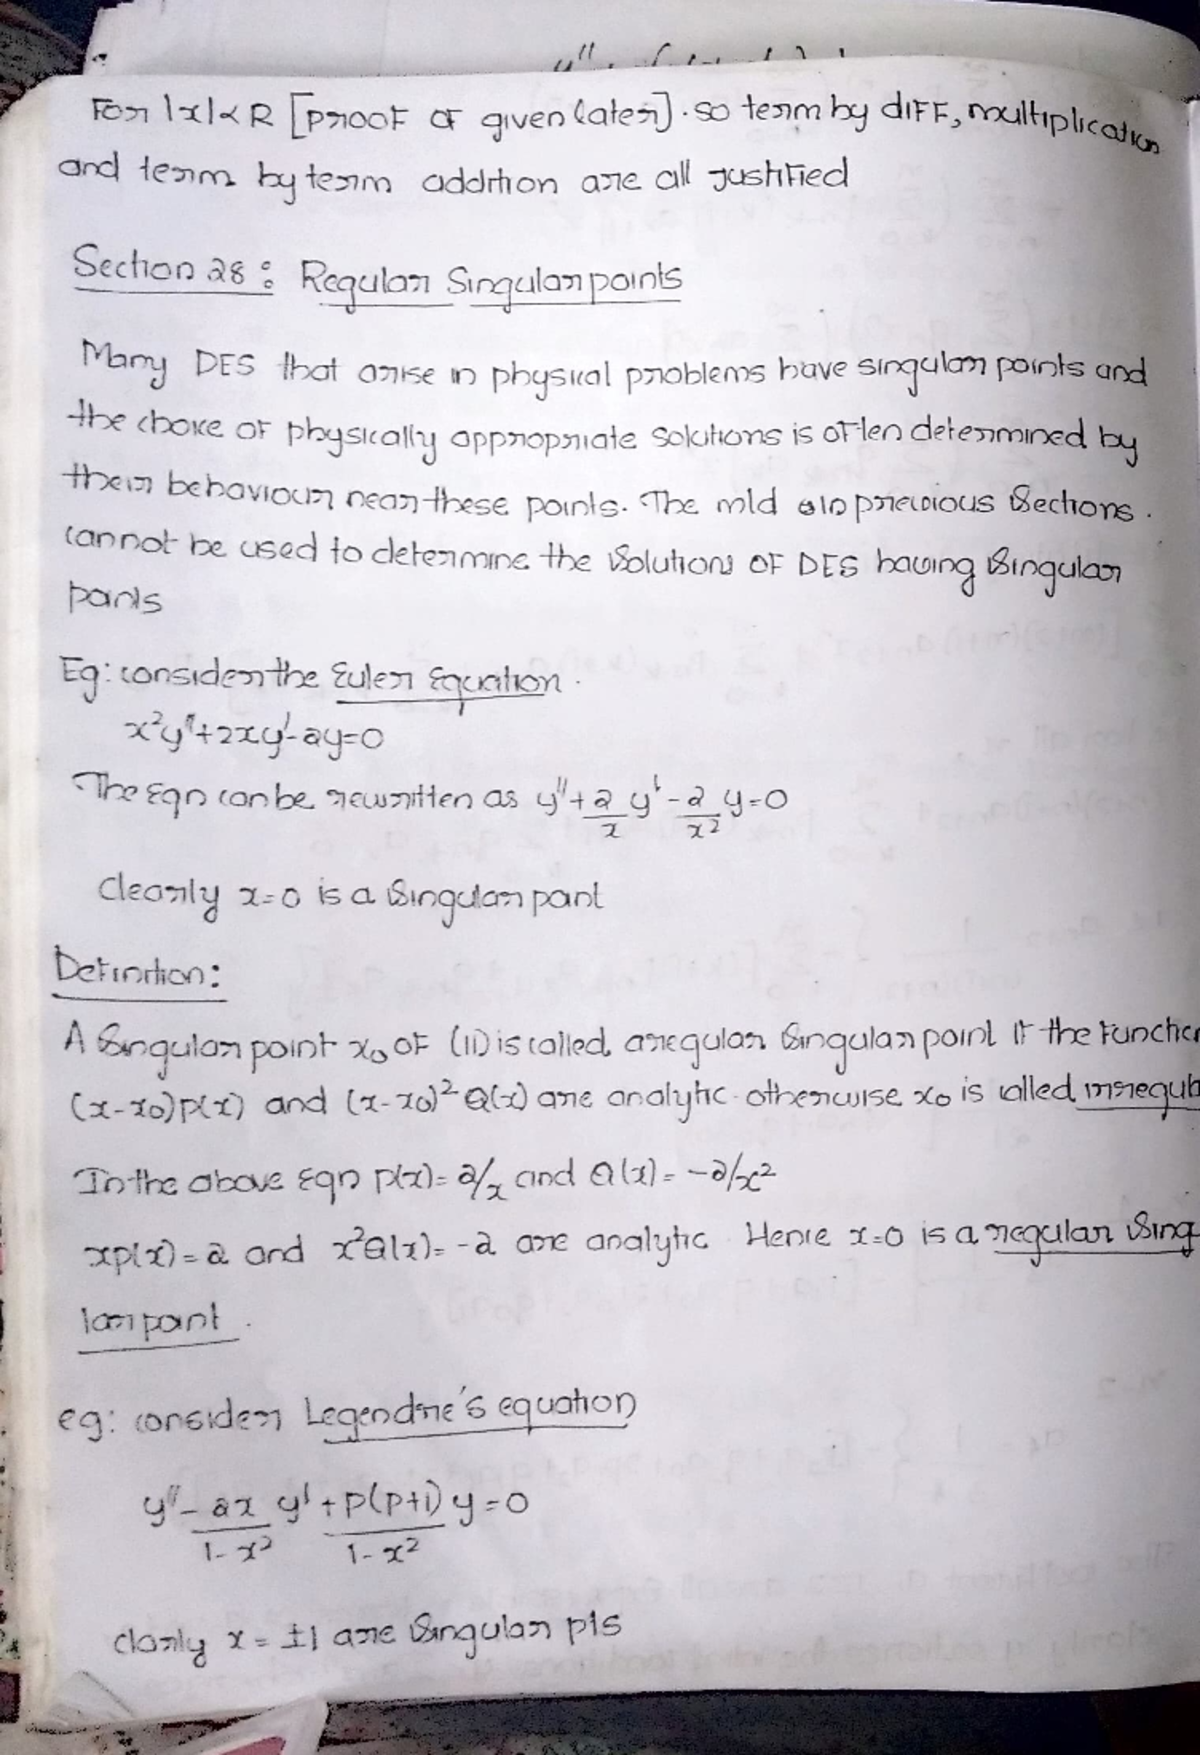 For |x|< R [proof of given later]. so term by diff, multiplication
and term by term addition are all justified
Section 28: Regular Singular points
Many DES that arise in physical problems have singular points and
the choice of physically appropriate solutions is often determined by
their behaviour near these points. The mld in previous Sections.
cannot be used to determine the Solutions of DES having Singular
points
Eg: consider the Euler Equation.
x²y''+2xy'-2y=0
The Eqn can be rewritten as y''+2/x y'-2/x² y=0
Clearly x=0 is a Singular point
Definition:
A Singular point x₀ of (11) is called a regular Singular point if the functio
(x-x₀)p(x) and (x-x₀)² Q(x) are analytic. otherwise x₀ is called irregul
In the above Eqn p(x)=2/x and Q(x)=-2/x²
xp(x)=2 and x²Q(x)=-2 are analytic. Hence x=0 is a regular Sing
lar point.
eg: consider Legendre's equation
y''- 2x/1-x² y' + p(p+1)/1-x² y=0
clarly x = ±1 are Singular pts